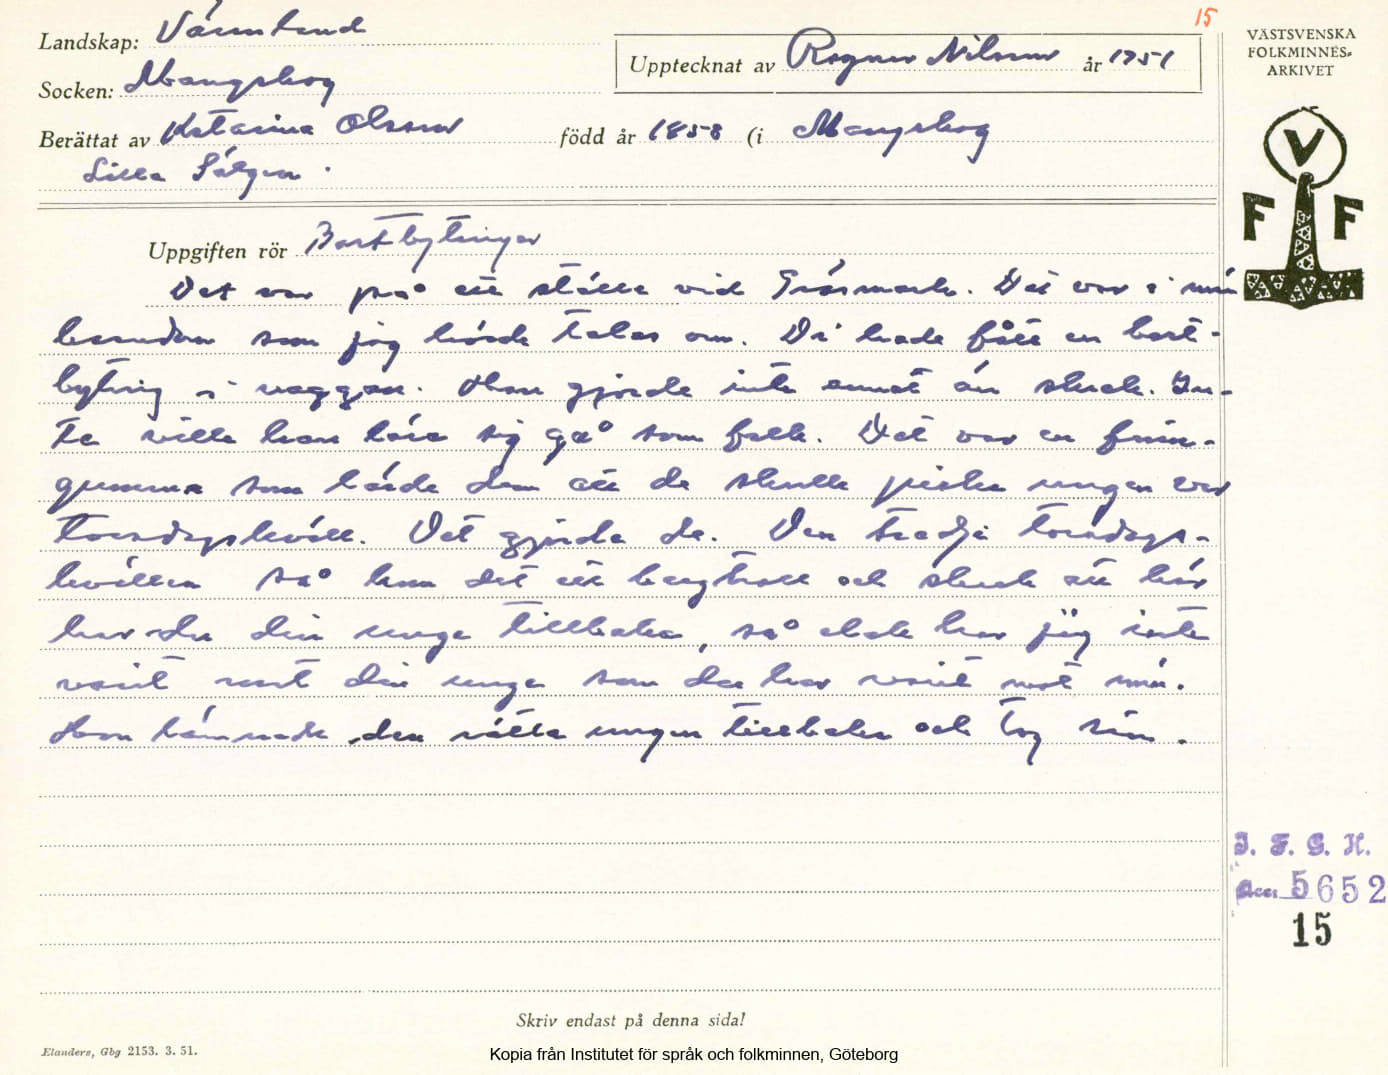 15
Landskap: Värmland
VÄSTSVENSKA
FOLKMINNES-
ARKIVET
Upptecknat av Ragnar Nilsson år 1951
Socken: Mangskog
Berättat av Katarina Olsson född år 1858 (i Mangskog
Lilla Sälgen.
V
F F
Uppgiften rör Bortbytingar
Det var på ett ställe vid Gräsmark. Det var i min
barndom som jag hörde talas om. Di hade fått en bort-
byting i vaggan. Han gjorde inte annat än skrek. In-
te ville han lära sig gå som folk. Det var en finn-
gumma som lärde dem att de skulle piska ungen var
torsdagskväll. Det gjorde de. Den tredje torsdags-
kvällen så kom det ett bergtroll och skrek att här
har du din unge tillbaka, så elak har jag inte
varit mot din unge som du har varit mot min.
Hon lämnade den rätta ungen tillbaka och tog sin.
I. F. G. H.
Acc. 5652
15
Skriv endast på denna sida!
Elanders, Gbg 2153. 3. 51.
Kopia från Institutet för språk och folkminnen, Göteborg